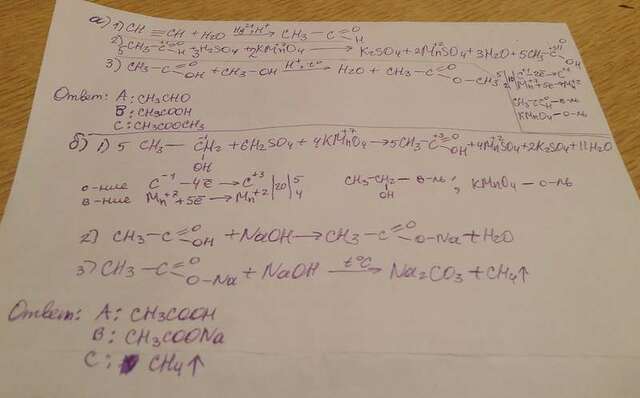 а) 1) CH ≡ CH + H2O —Hg+2, H+→ CH3 – C =O H
2) 5CH3 – C+1 =O H + 3H2SO4 + 2KMn+7O4 → K2SO4 + 2Mn+2SO4 + 3H2O + 5CH3 – C+3 =O OH
3) CH3 – C =O OH + CH3 – OH —H+, t°→ H2O + CH3 – C =O O – CH3
5 | C+1 –2ē → C+3
2 | Mn+7 +5ē → Mn+2
CH3C =O H – в-ль
KMnO4 – о-ль
Ответ: А: CH3CHO
В: CH3COOH
С: CH3COOCH3
б) 1) 5 CH3 – C-1H2 OH + 6H2SO4 + 4KMn+7O4 → 5CH3 – C+3 =O OH + 4Mn+2SO4 + 2K2SO4 + 11H2O
о-ние C-1 –4ē → C+3 | 20 | 5
в-ние Mn+2 +5ē → Mn+2 | 4
CH3 – CH2 OH – в-ль; KMnO4 – о-ль
2) CH3 – C =O OH + NaOH → CH3 – C =O O – Na + H2O
3) CH3 – C =O O – Na + NaOH —t°C→ Na2CO3 + CH4↑
Ответ: А: CH3COOH
В: CH3COONa
С: CH4↑